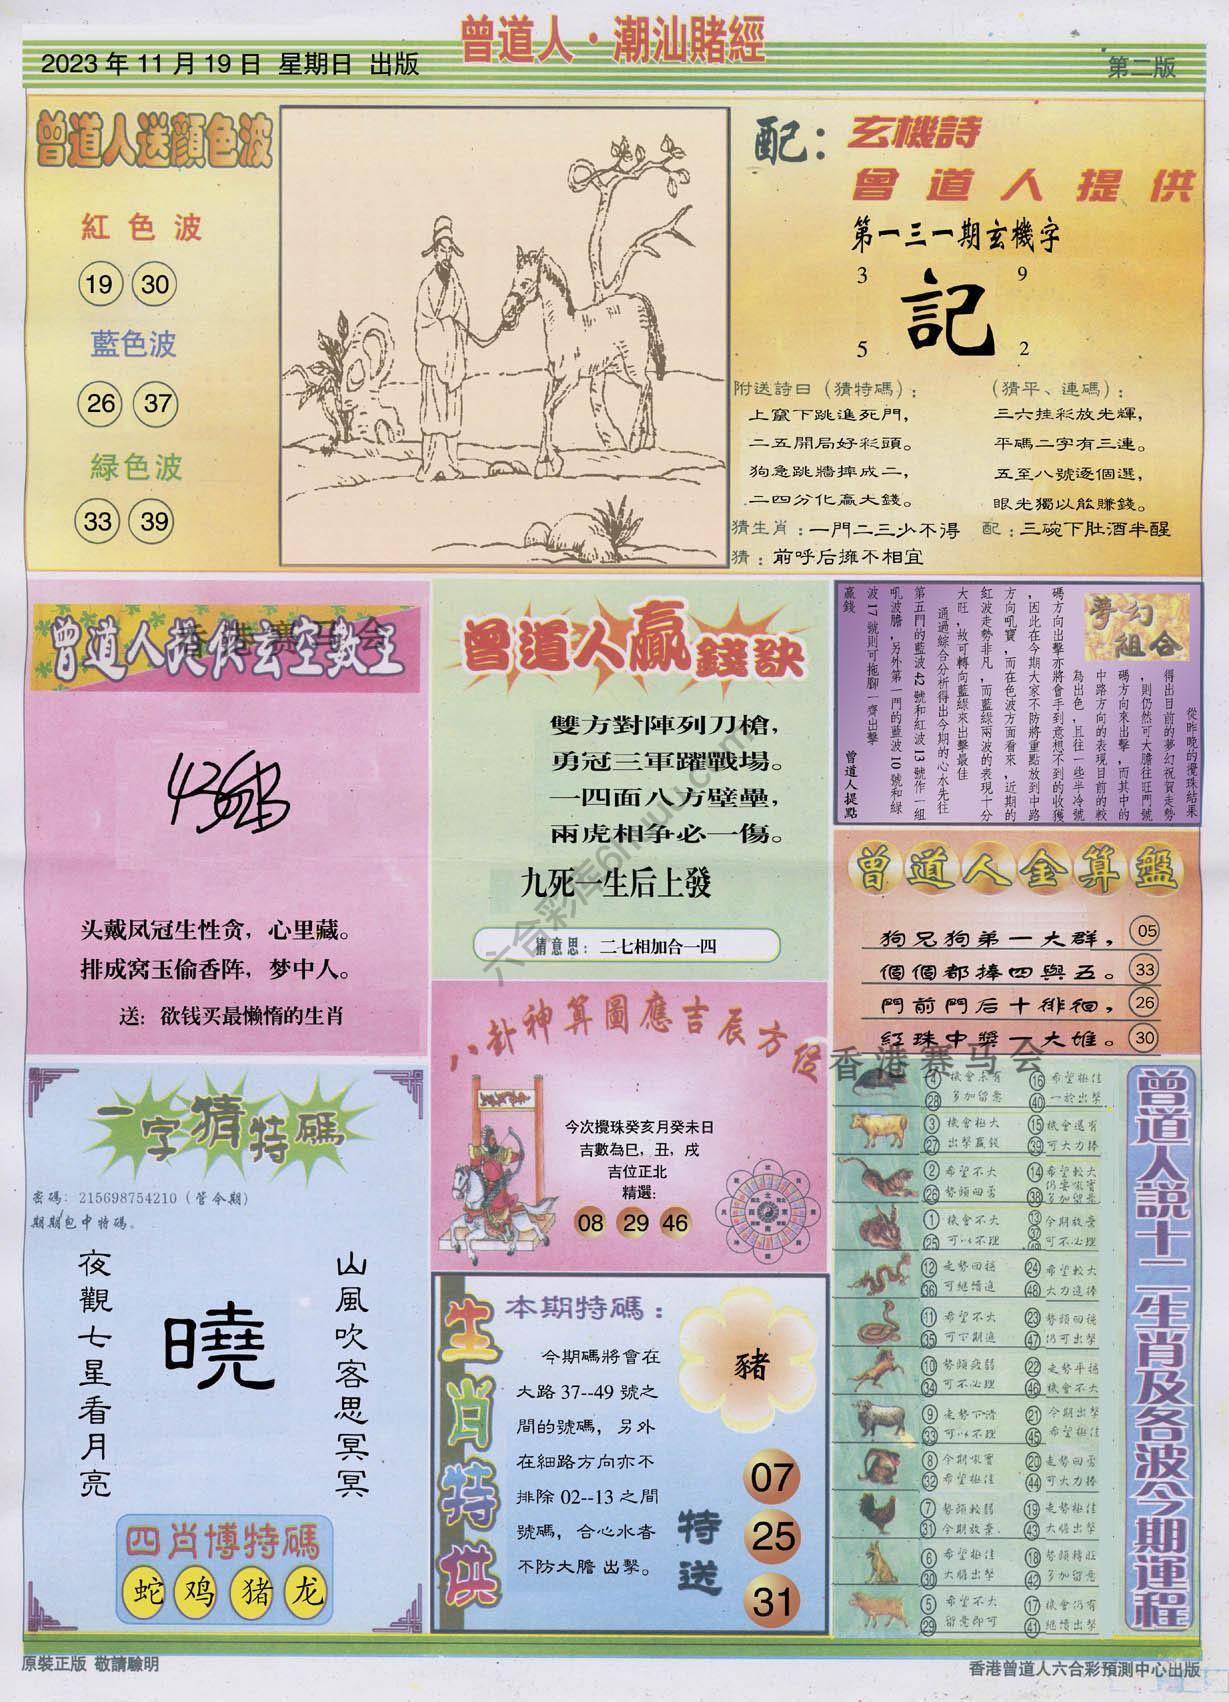 曾道人·潮汕賭經
2023年11月19日 星期日 出版
第二版
曾道人送顏色波
紅色波
19 30
藍色波
26 37
緑色波
33 39
配：玄機詩
曾道人提供
第一三一期玄機字
3 9
記
5 2
附送詩曰（猜特碼）：
上竄下跳進死門，
二五開局好彩頭。
狗急跳牆摔成二，
二四分化贏大錢。
（猜平、連碼）：
三六挂彩放光輝，
平碼二字有三連。
五至八號逐個選，
眼光獨以能賺錢。
猜生肖：一門二三少不得
配：三碗下肚酒半醒
猜：前呼后擁不相宜
曾道人提供玄空數王
香港赛马会
头戴凤冠生性贪，心里藏。
排成窝玉偷香阵，梦中人。
送：欲钱买最懒惰的生肖
曾道人贏錢訣
雙方對陣列刀槍，
勇冠三軍躍戰場。
一四面八方壁壘，
兩虎相争必一傷。
九死一生后上發
猜意思：二七相加合一四
夢幻組合
從昨晚的攪珠結果
得出目前的夢幻祝賀走勢
，則仍然可大膽往旺門號
碼方向來出擊，而其中的
中路方向的表現目前的較
為出色，且往一些半冷號
碼方向出擊亦將會手到意想不到的收獲
，因此在今期大家不防將重點放到中路
方向吼寶，而在色波方面看來，近期的
紅波走勢非凡，而藍綠兩波的表現十分
大旺，故可轉向藍綠來出擊最佳
通過綜合分析得出今期的心水先往
第五門的藍波42號和紅波13號作一組
吼波膽，另外第一門的藍波10號和綠
波17號則可拖腳一齊出擊
贏錢
曾道人提點
曾道人金算盤
狗兄狗弟一大群， 05
個個都捧四與五。 33
門前門后十徘徊， 26
紅珠中獎一大堆。 30
香港赛马会
六合彩库6huu.com
八卦神算圖應吉辰方位
今次攪珠癸亥月癸未日
吉數為巳，丑，戌
吉位正北
精選：
08 29 46
一字猜特碼
密碼：215698754210（管令期）
期期包中特碼。
山風吹客思冥冥
曉
夜觀七星看月亮
四肖博特碼
蛇 鸡 猪 龙
生肖特供
本期特碼：
今期碼將會在
大路37--49號之
間的號碼，另外
在細路方向亦不
排除02--13之間
號碼，合心水者
不防大膽 出擊。
豬
特送
07
25
31
曾道人説十二生肖及各波今期運程
4 28 機會未有 多加留意 16 40 希望極佳 一於出擊
3 27 機會極大 出擊贏錢 15 39 機會還有 可大力捧
2 26 希望不大 勢頭回勇 14 38 希望較大 仍要吼實 多加留意
1 25 機會不大 可以不理 13 37 49 今期放棄 可不必理
12 36 走勢回穩 可繼續追 24 48 希望較大 大力追捧
11 35 希望不大 可下期追 23 47 勢頭回穩 仍可出擊
10 34 勢頭疲弱 可不必理 22 46 走勢平穩 機會不大
9 33 走勢下滑 可以不理 21 45 今期出擊 希望極佳
8 32 今期吼實 希望極佳 20 44 走勢回勇 可大力捧
7 31 勢頭較弱 今期放棄 19 43 走勢極佳 大膽出擊
6 30 希望極佳 大膽出擊 18 42 勢頭轉旺 多加留意
5 29 希望不大 留意即可 17 41 機會仍有 繼續出擊
原裝正版 敬請驗明
香港曾道人六合彩預測中心出版